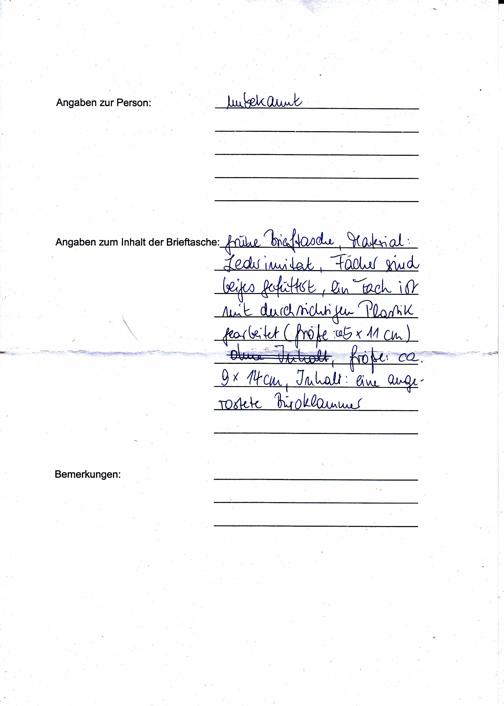 Angaben zur Person: unbekannt
Angaben zum Inhalt der Brieftasche: grüne Brieftasche, Material:
Lederimitat, Fächer sind
beiges gefüttert, ein Fach ist
mit durchsichtigen Plastik
gearbeitet (Größe 5 x 11 cm)
Ohne Inhalt, Größe: ca.
9 x 14 cm, Inhalt: eine ange-
rostete Büroklammer
Bemerkungen: